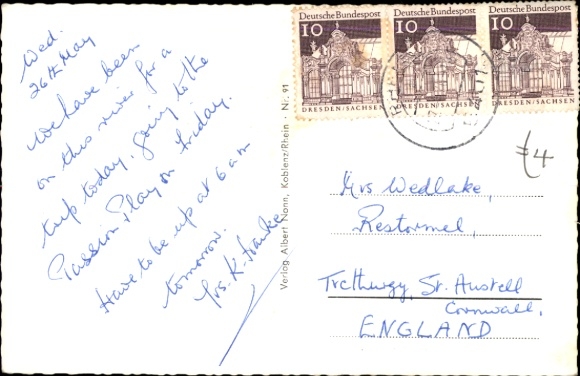 Wed.
26th May
We have been
on this river for a
trip today, going to the
Passion Play on Friday.
Have to be up at 6 am
tomorrow.
Yrs. K. Hawke
Verlag Albert Nonn, Koblenz/Rhein · Nr. 91
Deutsche Bundespost
10
DRESDEN/SACHSEN
Deutsche Bundespost
10
DRESDEN/SACHSEN
Deutsche Bundespost
10
DRESDEN/SACHSEN
£4
Mrs Wedlake,
Restormel,
Trethurgy, St. Austell
Cornwall,
ENGLAND